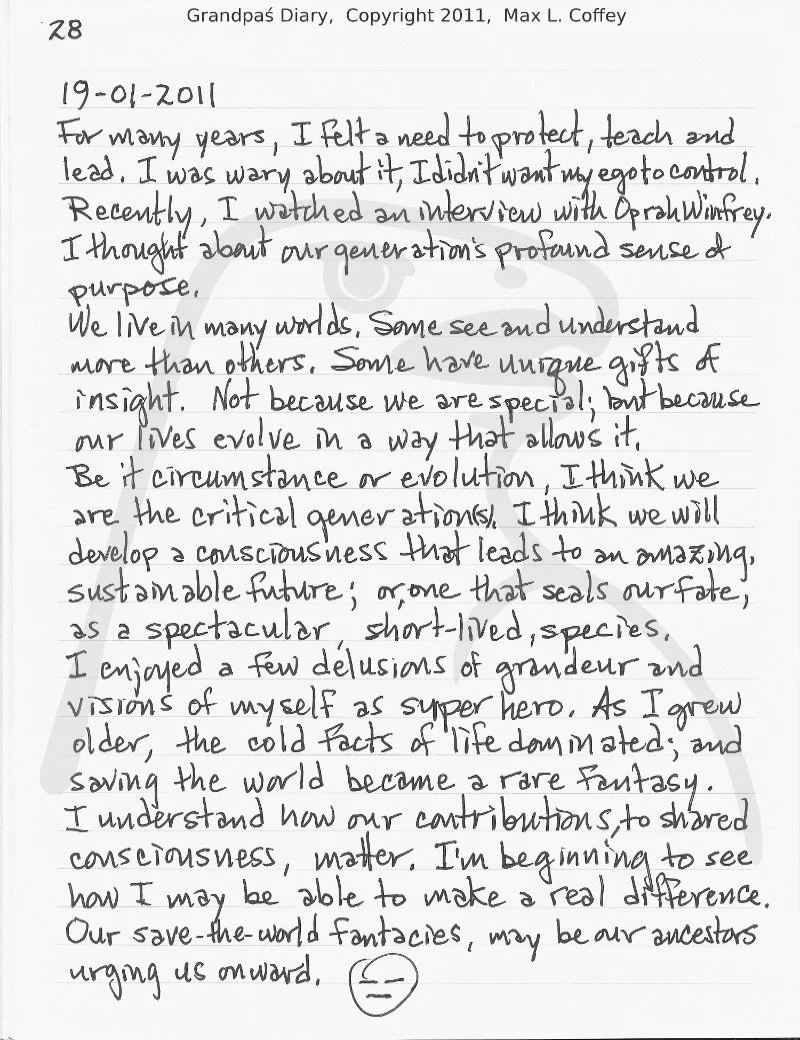 Grandpaś Diary, Copyright 2011, Max L. Coffey
28
19-01-2011
For many years, I felt a need to protect, teach and
lead. I was wary about it, I didn't want my ego to control.
Recently, I watched an interview with Oprah Winfrey.
I thought about our generation's profound sense of
purpose.
We live in many worlds. Some see and understand
more than others. Some have unique gifts of
insight. Not because we are special; but because
our lives evolve in a way that allows it.
Be it circumstance or evolution, I think we
are the critical generation(s). I think we will
develop a consciousness that leads to an amazing,
sustainable future; or, one that seals our fate,
as a spectacular, short-lived, species.
I enjoyed a few delusions of grandeur and
visions of myself as super hero. As I grew
older, the cold facts of life dominated; and
saving the world became a rare fantasy.
I understand how our contributions, to shared
consciousness, matter. I'm beginning to see
how I may be able to make a real difference.
Our save-the-world fantacies, may be our ancestors
urging us onward.